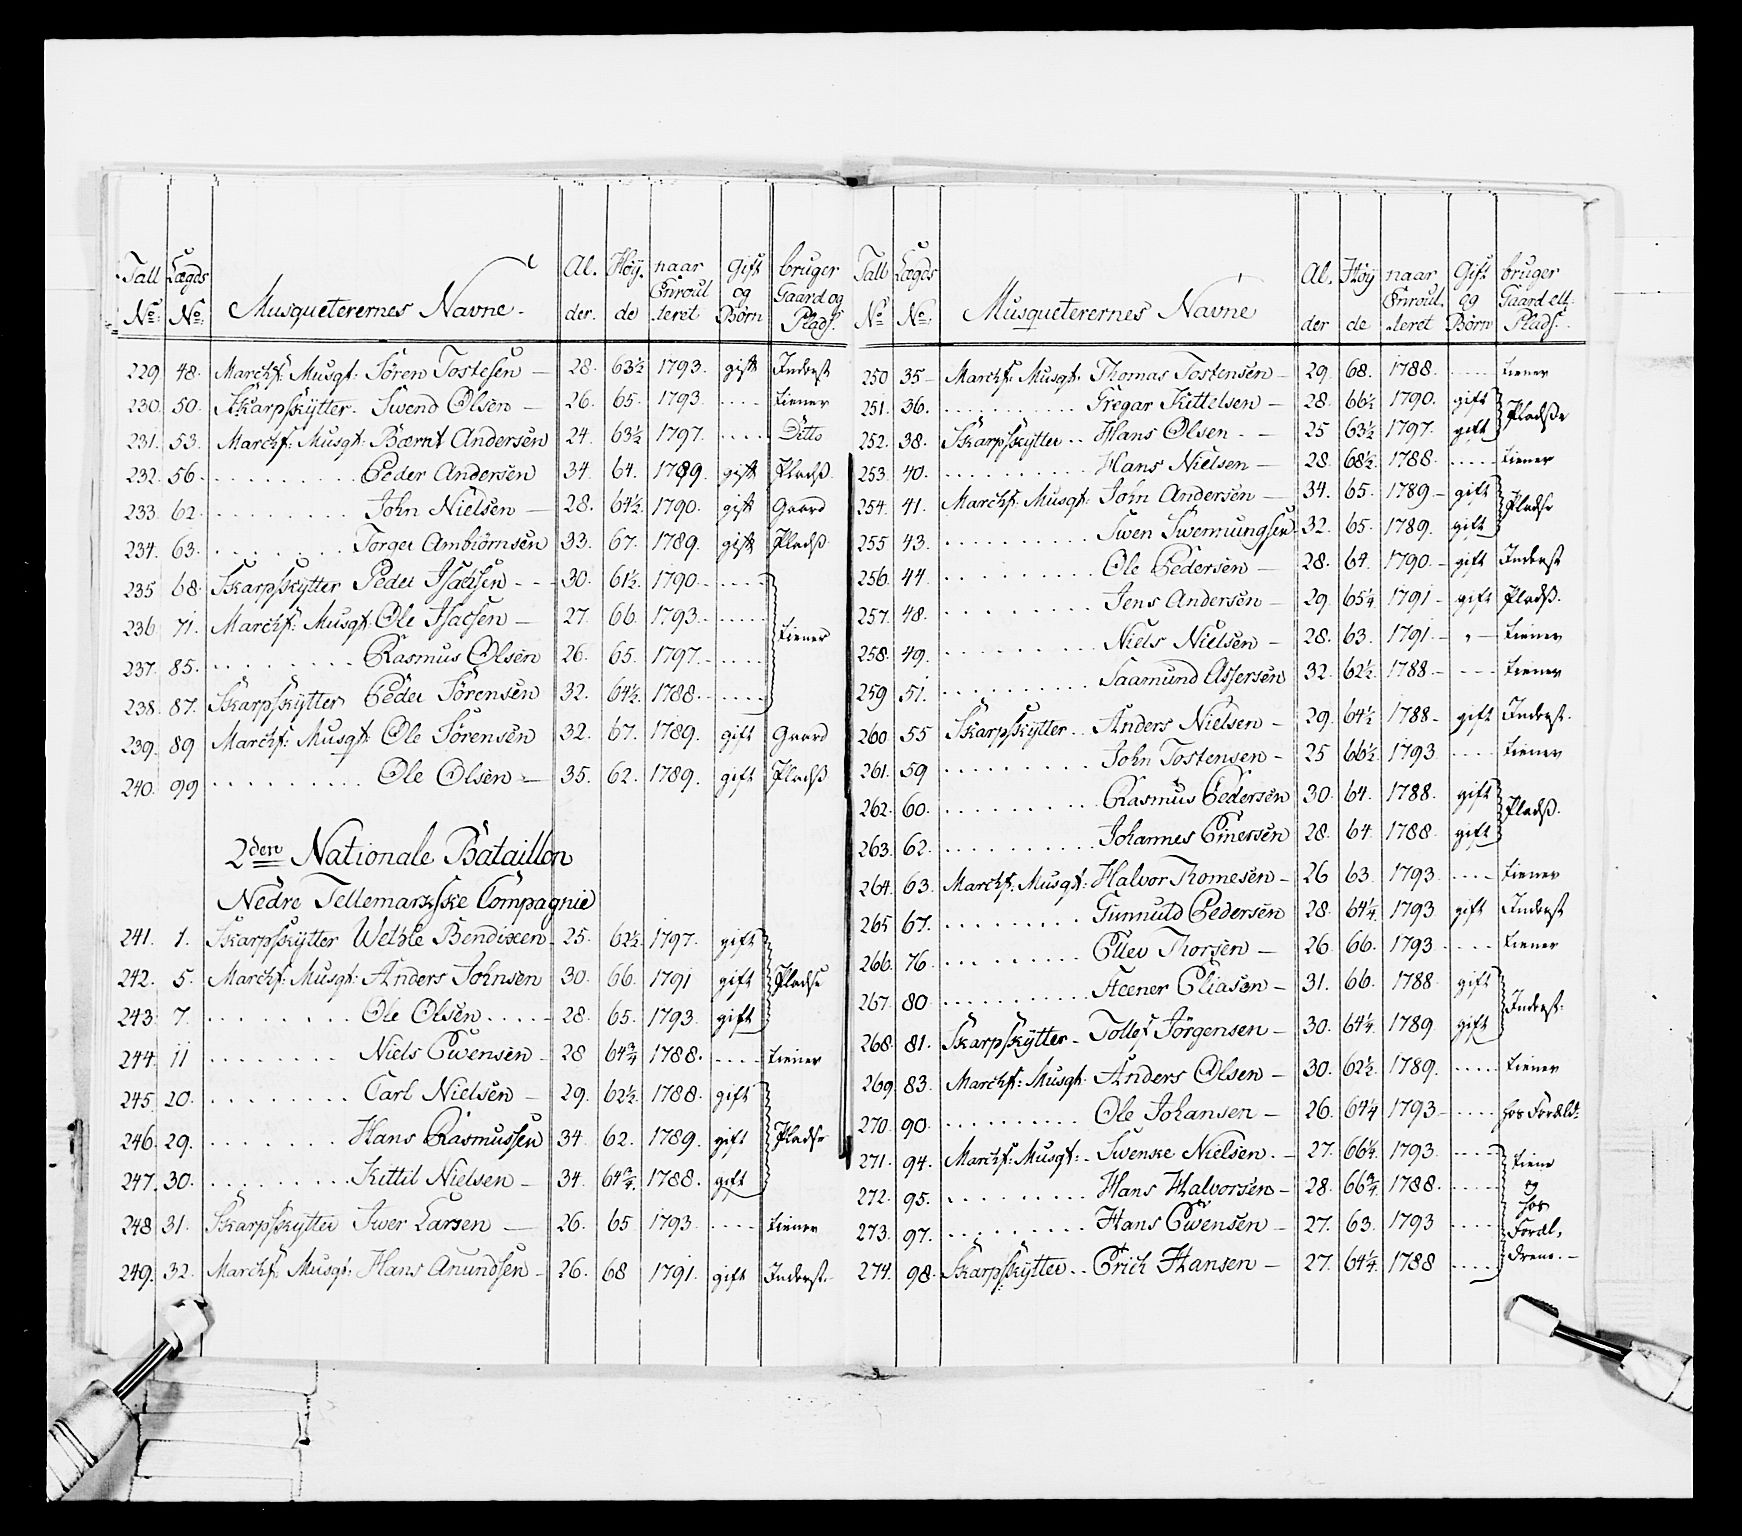 Tall No: | Lægds No: | Musqueterernes Navne. | Al. der. | Høy. de | naar Enroul .leret | Gift og Børn | bruger Gaard og Plads.
229 | 48. | Marchf: Musqt: Sören Tostesen — | 28. | 63½ | 1793. | gift | Inderst
230. | 50. | Skarpskytter. Swend Olsen — | 26. | 65. | 1793. | .... | tiener
231. | 53. | Marchf: Musqt: Bærnt Andersen | 24. | 63½ | 1797. | ..... | Ditto
232. | 56. | ......... Peder Andersen | 34. | 64. | 1789. | gift | Pladß.
233. | 62. | ........ John Nielsen — | 28. | 64½ | 1790. | gift | Gaard
234. | 63. | ....... Torger Ambiörnsen | 33. | 67. | 1789. | gift | Pladß.
235 | 68. | Skarpskytter Peder Isachsen - - - | 30. | 61½ | 1790. | .....
236. | 71. | Marchf: Musqt: Ole Isacsen — | 27. | 66. | 1793. | ..... | tiener
237. | 85. | ....... Rasmus Olsen | 26. | 65. | 1797. | ....
238. | 87. | Skarpskytter Peder Sörensen | 32. | 64½ | 1788. | .....
239. | 89 | Marchf: Musqt: Ole Sörensen | 32. | 67. | 1789. | gift | Gaard
240. | 99 | ......... Ole Olsen — | 35. | 62. | 1789. | gift | Pladß
2den Nationale Bataillon
Nedre Tellemarkske Compagnie
241. | 1. | Skarpskytter Wetle Bendixen. | 25. | 62½ | 1797. | gift
242. | 5. | Marchf: Musqt: Anders Johnsen | 30. | 66. | 1791 | gift | Pladse
243. | 7. | ........ Ole Olsen..... | 28. | 65. | 1793. | gift
244. | 11 | ........ Niels Ewensen — | 28 | 64¾ | 1788. | .... | tiener
245. | 20. | ........ Carl Nielsen — | 29. | 62½ | 1788. | gift
246. | 29. | ....... Hans Rasmussen | 34. | 62. | 1789. | gift | Pladse
247. | 30. | ......... Kittil Nielsen — | 34. | 64¾ | 1788. | gift
248. | 31. | Skarpskytter Iwer Larsen — | 26. | 65 | 1793. | .... | tiener
249. | 32. | Marchf: Musqt: Hans Anundsen — | 26. | 68 | 1791. | gift | Inderst.
Tall No | Lægds No. | Musqueterernes Navne | Al. der | Høy de | naar Enroul. .leret | Gift og Børn | bruger Gaard ell. Plads.
250 | 35 — | Marchf: Musqt: Thomas Tostensen — | 29. | 68. | 1788. | ..... | tiener
251. | 36. | .......... Gregar Kittelsen — | 28. | 66½ | 1790. | gift | Pladße
252. | 38. | Skarpskytter .. Hans Olsen. — | 25 | 63½ | 1797. | gift
253. | 40. | .......... Hans Nielsen — | 28. | 68½ | 1788. | ..... | tiener
254. | 41. | Marchf: Musqt: John Andersen — | 34. | 65. | 1789. — | gift | Pladse
255 | 43. | .......... Swen Swemungsen | 32. | 65. | 1789. | gift
256. | 44. | .......... Ole Pedersen — | 28. | 64. | 1790. — | gift | Inderst
257. | 48. | .......... Jens Andersen — | 29. | 65¼ | 1791 — | gift | Pladß.
258. | 49. | .......... Niels Nielsen — | 28. | 63. | 1791. — | " — | tiener
259 | 51. | .......... Saamund Assersen | 32. | 62½ | 1788 — | --- | tiener
260 | 55 | Skarpskytter .. Anders Nielsen — | 29. | 64½ | 1788 — | gift | Inderst.
261. | 59 | .......... John Tostensen — | 25 | 66½ | 1793 | .... | tiener
262. | 60. | .......... Rasmus Pedersen | 30. | 64. | 1788. | gift | Pladß.
263. | 62. | .......... Johannes Einersen | 28. | 64. | 1788. | gift
264. | 63. | Marchf: Musqt: Halvor Thomesen — | 26 | 63. | 1793. | .... | tiener
265 | 67. | ......... Gunnuld Pedersen | 28. | 64¼ | 1793 | gift | Inderst
266. | 76. | ......... Ellev Thorsen — | 26. | 66. | 1793. | .... | tiener
267. | 80 | ........... Steener Eliasen — | 31. | 66. | 1788. | gift | Inderst.
268. | 81. | Skarpskytter — Tollef Jörgensen — | 30. | 64¼ | 1789. | gift
269 | 83. | Marchf: Musqt: Anders Olsen — | 30. | 62½ | 1789. | ..... | tiener
270. | 90. | .......... Ole Johansen — | 26. | 64¼ | 1793 — | .... | hos Foræld:
271. | 94. | Marchf: Musqt: — Swenske Nielsen. — | 27. | 66¼ | 1793. | .... | tiene
272. | 95. | .......... Hans Halvorsen — | 28. | 66¾ | 1788. | ..... | og hos
273. | 97. | .......... Hans Ewensen — | 27. | 63. | 1793 | .... | Foræl,
274. | 98. | Skarpskytter .. Erich Hansen — | 27. | 64¼ | 1788 | .... | drene. —